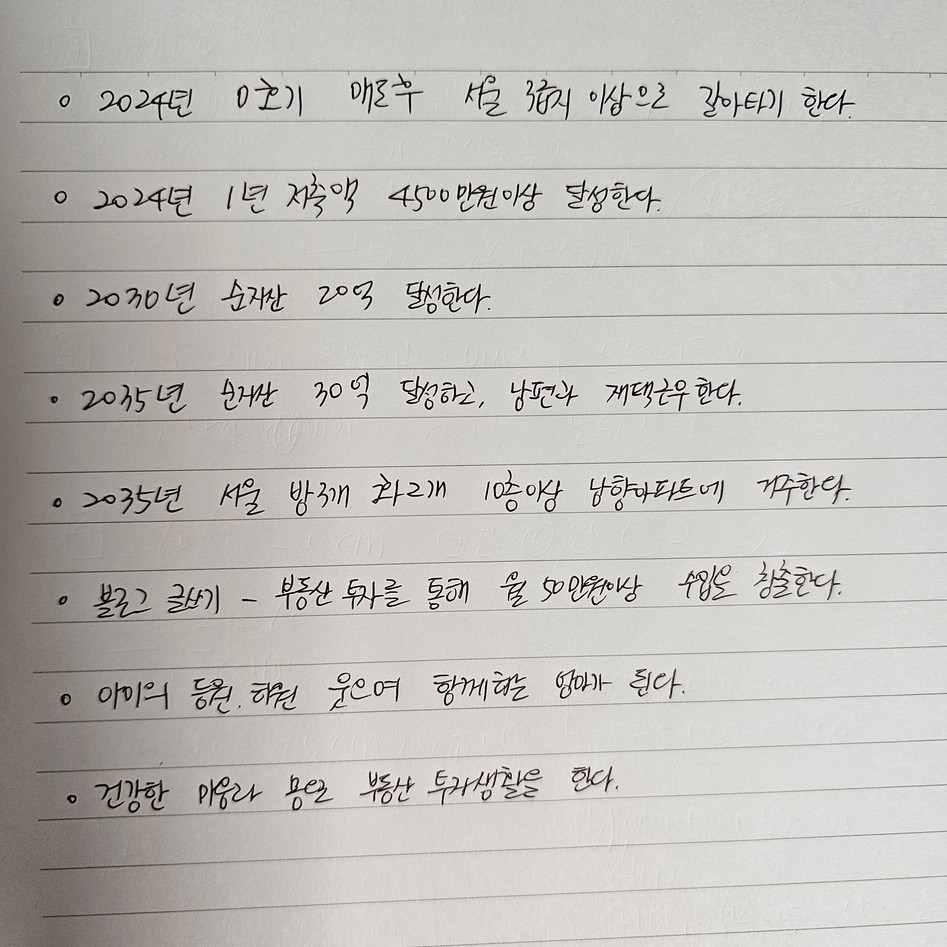 o 2024년 0호기 매도후 서울 3급지 이상으로 갈아타기 한다.
o 2024년 1년 저축액 4500만원이상 달성한다.
o 2030년 순자산 20억 달성한다.
o 2035년 순자산 30억 달성하고, 남편과 재택근무한다.
o 2035년 서울 방3개 화2개 10층이상 남향아파트에 거주한다.
o 블로그 글쓰기 - 부동산 투자를 통해 월 50만원이상 수입을 창출한다.
o 아이의 등원. 하원 웃으며 함께하는 엄마가 된다.
o 건강한 마음과 몸으로 부동산 투자생활을 한다.